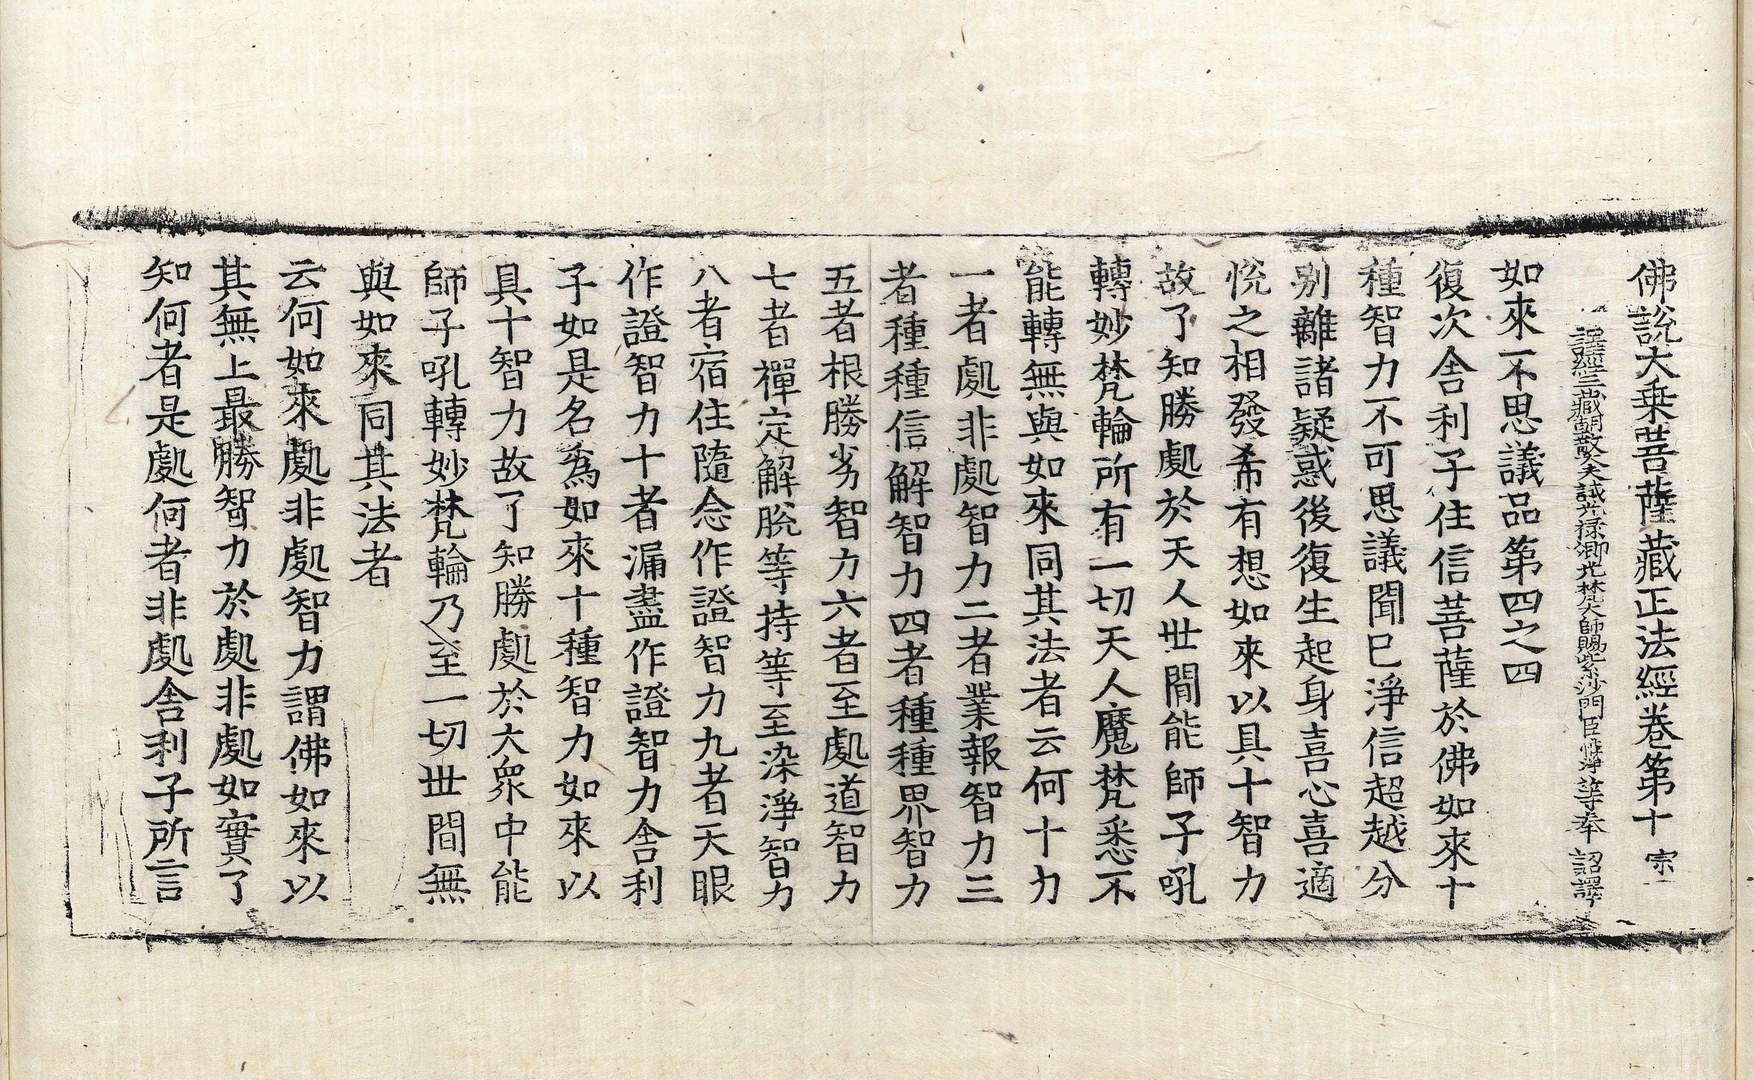 佛說大乗菩薩藏正法經卷第十 宗
譯經三藏朝散大夫試光祿卿光梵大師賜紫沙門臣惟淨等奉 詔譯
如來不思議品第四之四
復次舍利子住信菩薩於佛如來十
種智力不可思議聞已淨信超越分
别離諸疑惑後復生起身喜心喜適
恱之相發希有想如來以具十智力
故了知勝處於天人世間能師子吼
轉妙梵輪所有一切天人魔梵悉不
能轉無與如來同其法者云何十力
一者處非處智力二者業報智力三
者種種信解智力四者種種界智力
五者根勝劣智力六者至處道智力
七者禪定解脫等持等至染淨智力
八者宿住隨念作證智力九者天眼
作證智力十者漏盡作證智力舍利
子如是名為如來十種智力如來以
具十智力故了知勝處於大衆中能
師子吼轉妙梵輪乃至一切世間無
與如來同其法者
云何如來處非處智力謂佛如來以
其無上最勝智力於處非處如實了
知何者是處何者非處舍利子所言